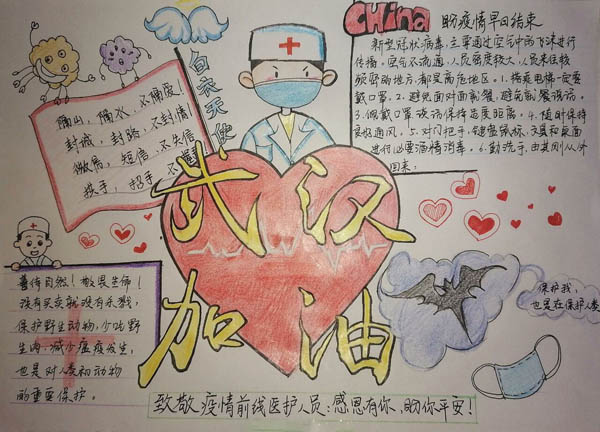 China 盼疫情早日结束
新型冠状病毒，主要通过空气中的飞沫进行
传播，空气不流通，人员密度较大，人员来往较
频繁的地方，都是高危地区。1.搭乘电梯一定要
戴口罩。2.避免面对面就餐，避免就餐说话。
3.佩戴口罩谈话保持适度距离。4.随时保持
良好通风。5.对门把手、键盘鼠标、文具和桌面
进行必要酒精消毒。6.勤洗手，尤其刚从外
回来。
白衣天使
隔山，隔水，不隔爱！
封城，封路，不封情
微病，短信，不失信
扶手，招手，不
武汉
加油
善待自然！敬畏生命！
没有买卖就没有杀戮，
保护野生动物，少吃野
生肉，减少瘟疫发生，
也是对人类和动物
的重要保护。
保护我，
也是在保护人类
致敬疫情前线医护人员：感恩有你，盼你平安！